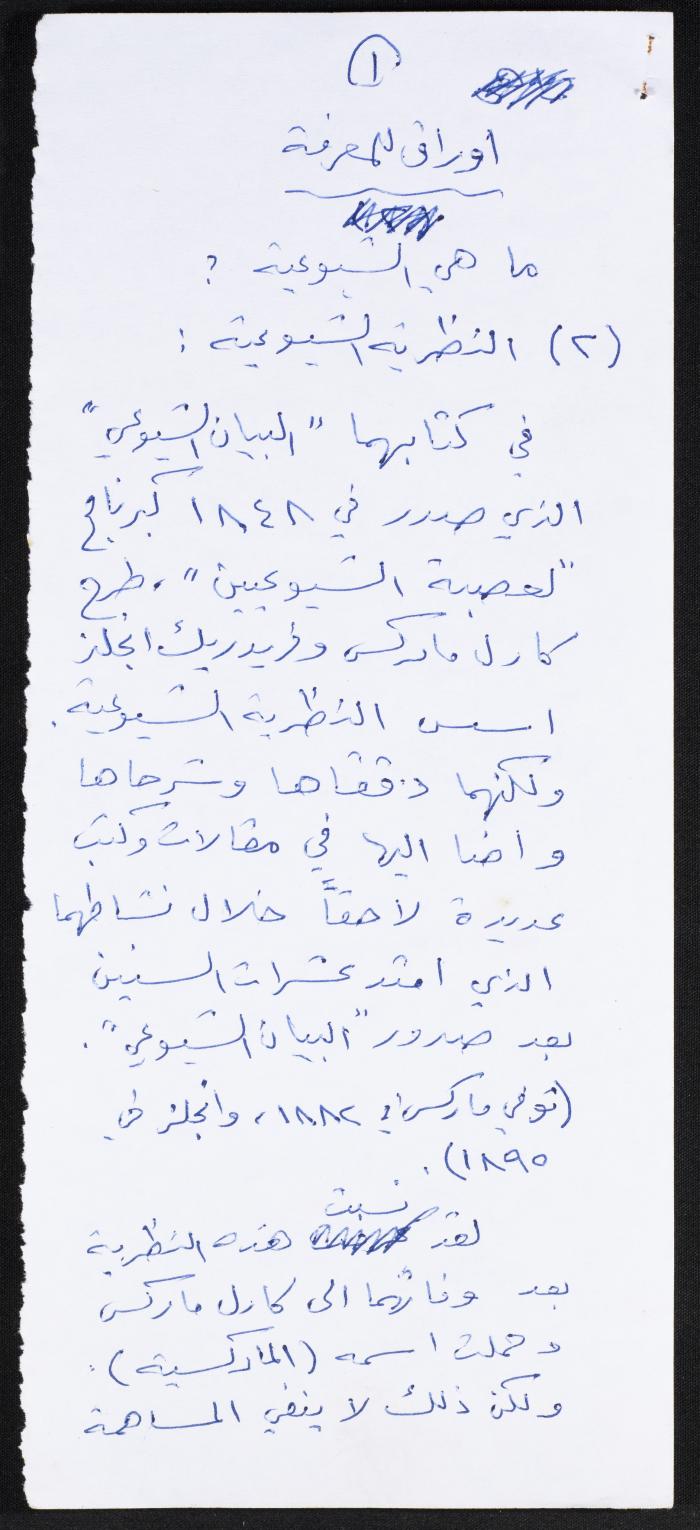 ١
اوراق للمعرفة
ما هي الشيوعية ؟
(٢) النظرية الشيوعية :
في كتابهما "البيان الشيوعي"
الذي صدر في ١٨٤٨ كبرنامج
"لعصبة الشيوعيين"، طرح
كارل ماركس وفريدريك انجلز
اسس النظرية الشيوعية.
ولكنهما دققاها وشرحاها
واضافا اليها في مقالات وكتب
عديدة لاحقاً خلال نشاطهما
الذي امتد عشرات السنين
بعد صدور "البيان الشيوعي".
(توفي ماركس في ١٨٨٢، وانجلز في
١٨٩٥).
لقد نسبت هذه النظرية
بعد وفاتهما الى كارل ماركس
وحملت اسمه (الماركسية).
ولكن ذلك لا ينفي المساهمة